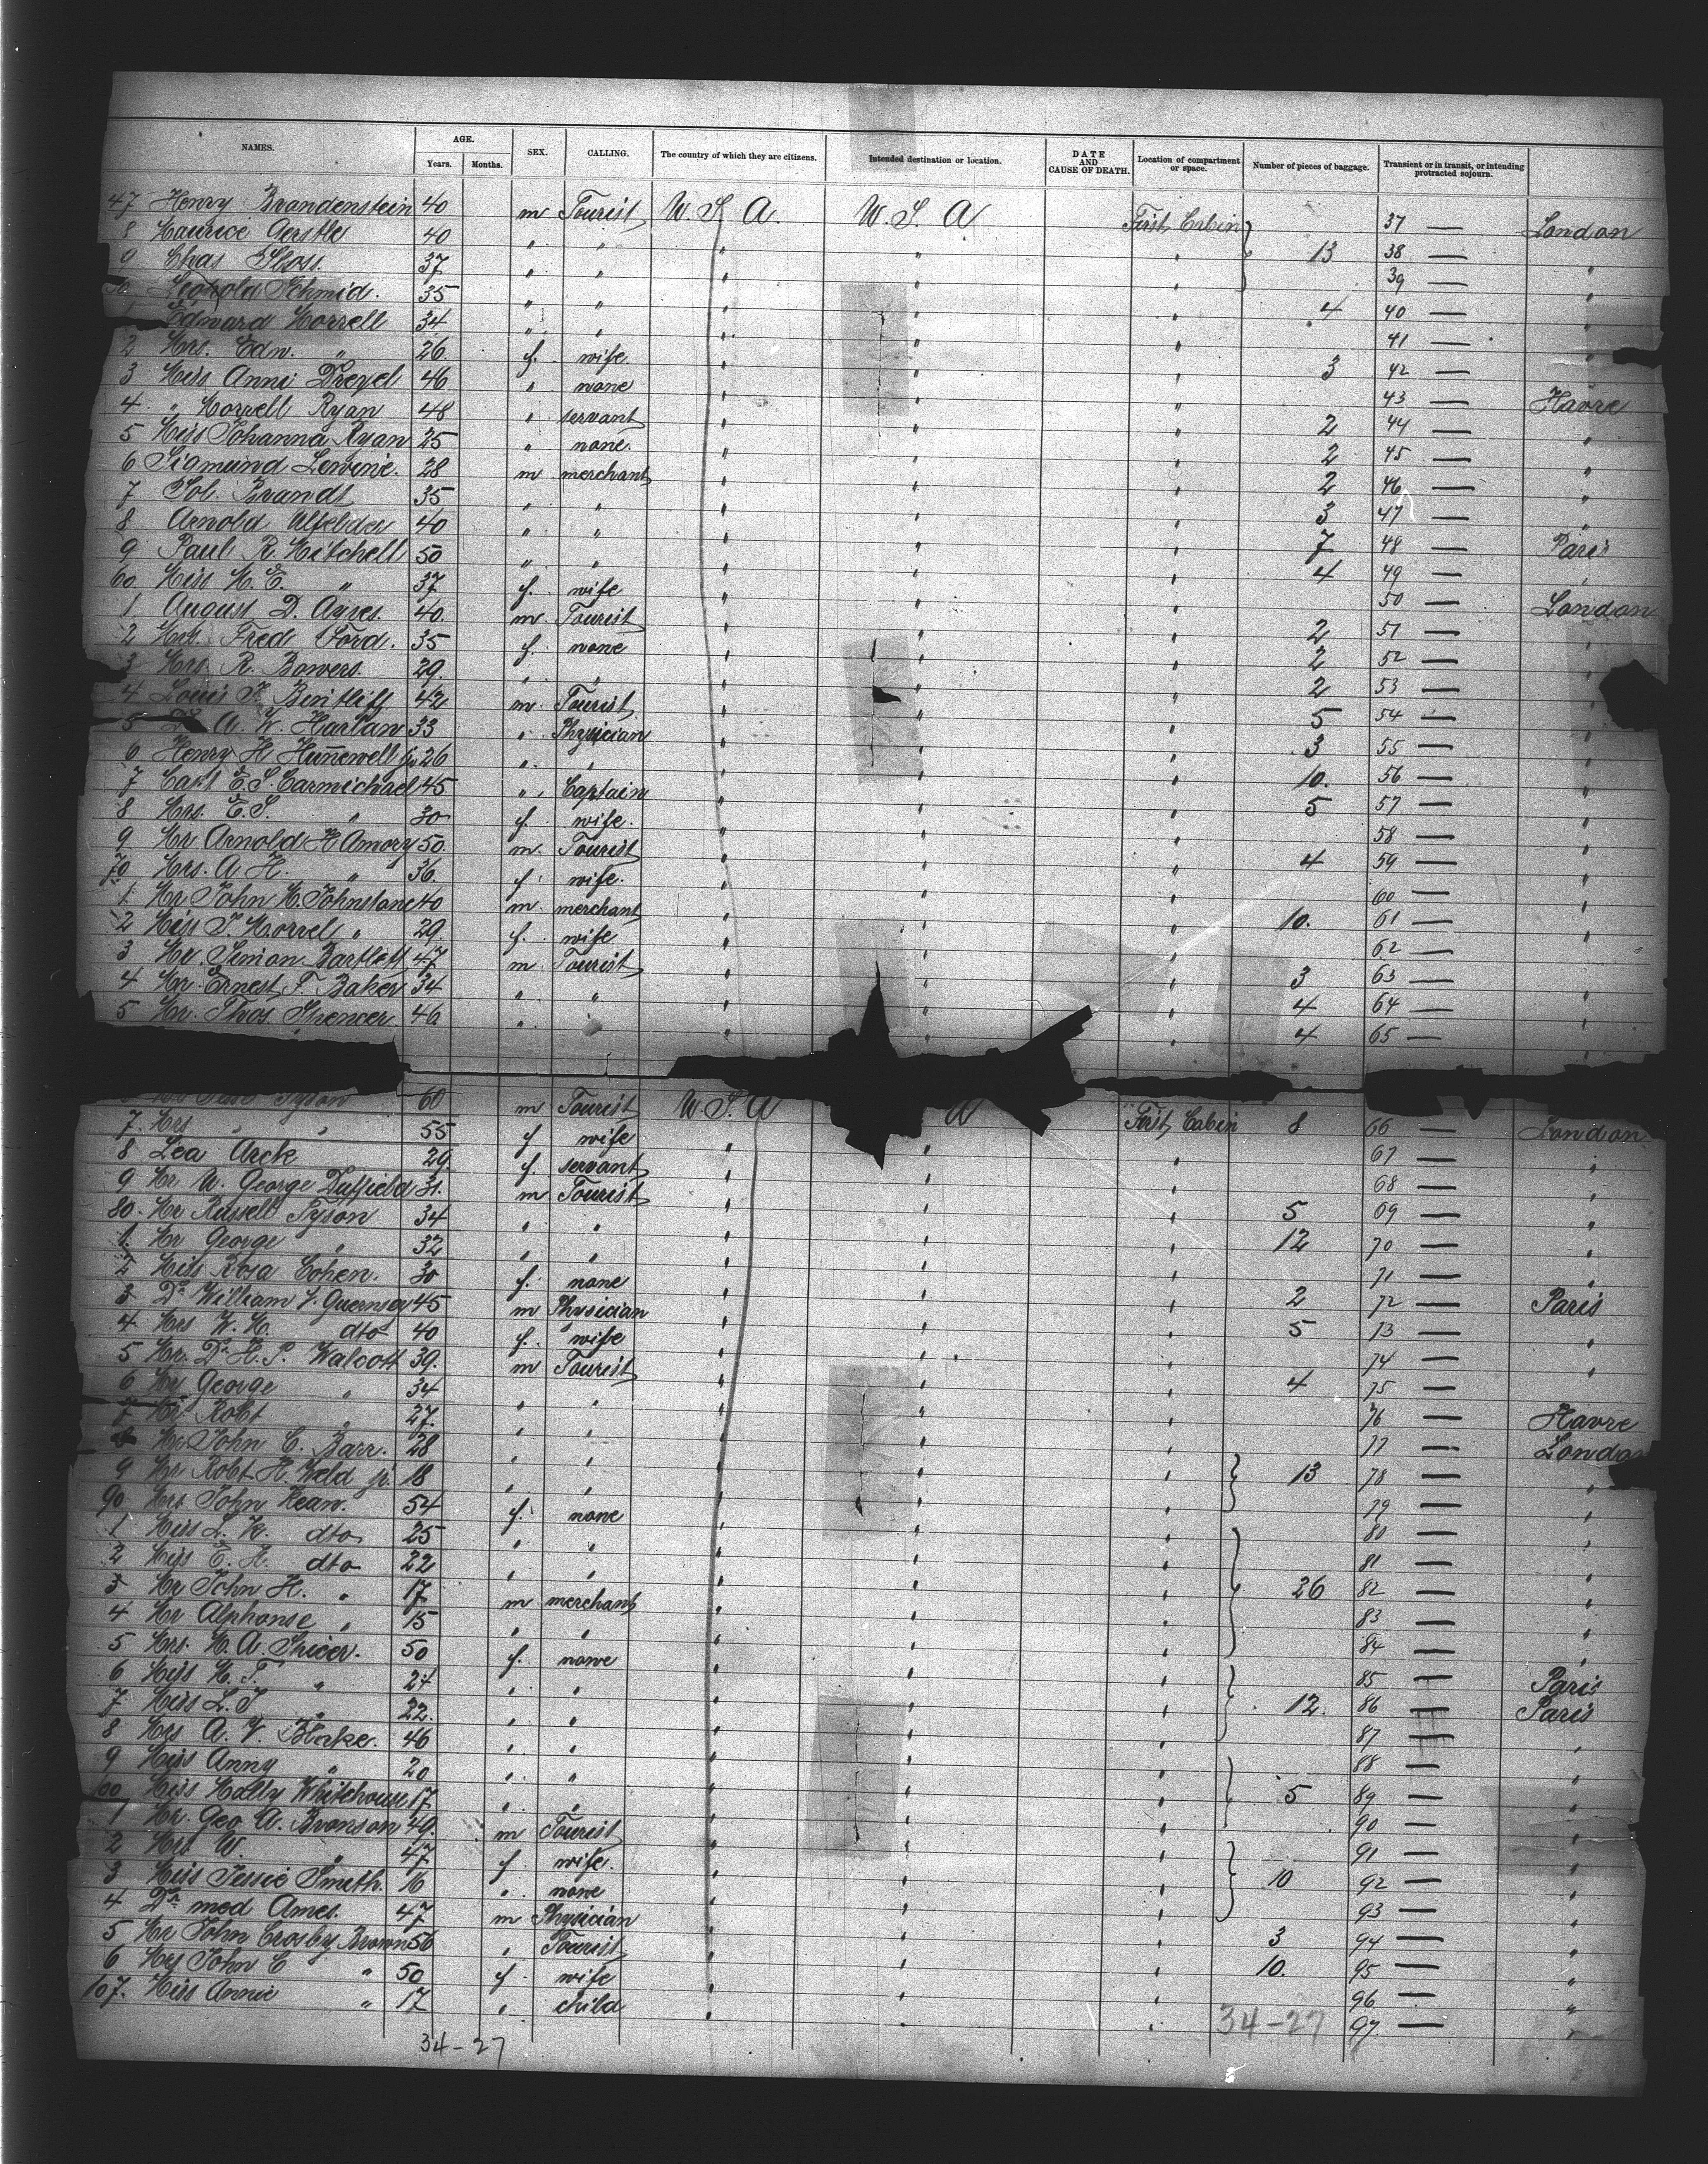 NAMES. AGE. Years. Months. SEX. CALLING. The country of which they are citizens. Intended destination or location. DATE AND CAUSE OF DEATH. Location of compartment or space. Number of pieces of baggage. Transient or in transit, or intending protracted sojourn.
47 Henry Brandenstein 40 m Tourist U S A U S A First Cabin 37 — London
8 Maurice Gerstle 40 " " " " " 13 38 — "
9 Chas Sloss. 37 " " " " " 39 — "
Leopold Schmid. 35 " " " " " 4 40 — "
Edward Morrell 34 " " " " " 41 — "
2 Mrs. Edw. " 26 f. wife " " " 3 42 —
3 Miss Anni Drexel 46 " none " " " 43 — Havre
4 " Morrell Ryan 48 " servant " " " 2 44 — "
5 Miss Johanna Ryan 25 " none. " " " 2 45 — "
6 Sigmund Lewinie. 28 m merchant " " " 2 46 — "
7 Sol. Brandt 35 " " " " " 3 47 "
8 Arnold 40 " " " " " 7 48 — Paris
9 Paul R. Mitchell 50 " " " " " 4 49 — "
60 Miss M. E. " 37 f. wife " " " 50 — London
1 August D. Ayres. 40. m. Tourist " " " 2 51 — "
2 Fred Ford. 35 f. none " " " 2 52 — "
3 Mrs. R. Bowers. 29. " " " " " 2 53 — "
4 Louis F. Bentliff 42 m Tourist " " " 5 54 — "
5 Dr A. W. Harlan 33 " Physician " " " 3 55 — "
6 Henry H Hunnewell jr 26 " " " " " 10. 56 — "
7 Capt E. S. Carmichael 45 " Captain " " " 5 57 — "
8 Mrs. E. S. " 30 f. wife. " " " 58 — "
9 Mr Arnold H Amory 50. m. Tourist " " " 4 59 — "
70 Mrs. A H. " 36. f. wife. " " " 60 — "
1 Mr John M. Johnstone 40 m. merchant " " " 10. 61 — "
2 Miss J. Morrel " 29. f. wife " " " 62 — "
3 Mr. Simon Bartlett 47 m Tourist " " " 3 63 — "
4 Mr. Ernest F. Baker 34 " " " " " 4 64 — "
5 Mr. Thos. Spencer 46. " " " " " 4 65 — "
Tyson 60 m Tourist U. S. A A First Cabin 8 66 — London
7. Mrs " " 55 f wife " " " 67 — "
8 Lea Arck 29. f. servant " " " 68 — "
9 Mr W. George Duffield 31. m Tourist " " " 5 69 — "
80. Mr Russell Tyson 34 " " " " " 12 70 — "
1. Mr George " 32 " " " " " 71 — "
2 Miss Rosa Cohen. 30 f. none " " " 2 72 — Paris
3 Dr William J. Guernsey 45 m Physician " " " 5 73 — "
4 Mrs W. M. dto 40 f. wife " " " 74 — "
5 Mr. Dr H. P. Walcott 39. m Tourist " " " 4 75 — "
6 Mr George " 34 " " " " " 76 — Havre
7 Mr. Robt " 27. " " " " " 77 — London
8 Mr John C. Barr. 28 " " " " " 13 78 — "
9 Mr Robt H. Weld jr. 18 " " " " " 79 — "
90. Mrs John Kean. 54 f. none " " " 80 — "
1 Miss L. K. dto 25 " " " " " 81 — "
2 Miss E. H. dto 22 " " " " " 26 82 — "
3 Mr John H. " 17 m merchant " " " 83 — "
4 Mr Alphonse " 15 " " " " " 84 — "
5 Mrs. M. A. Spicer. 50 f. none " " " 85 — Paris
6 Miss M. T. " 24 " " " " " 12. 86 — Paris
7 Miss L. T " 22. " " " " " 87 — "
8 Mrs A. V. Blake. 46 " " " " " 88 — "
9 Miss Anny " 20 " " " " " 5 89 — "
100 Miss Mally Whitehouse 17 " " " " " 90 — "
1 Mr. Geo A. Bronson 49. m Tourist " " " 91 — "
2 Mrs W. " 47 f. wife. " " " 10 92 — "
3 Miss Jessie Smeth. 16 " none " " " 93 — "
4 Dr med Ames. 47 m Physician " " " 3 94 — "
5 Mr John Crosby Brown 56 " Tourist " " " 10. 95 — "
6 Mrs John C " 50 f wife " " " 96 — "
107. Miss Annie " 17 " child " " " 97. — "
34-27 34-27